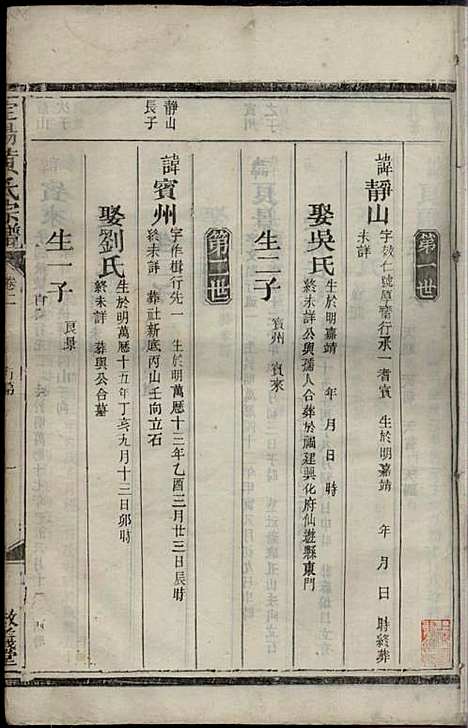 第一世
諱靜山 字敬仁號學齋行承一耆賓 生於明嘉靖 年 月 日 時終葬
未詳
娶吳氏 生於明嘉靖 年 月 日 時
終未詳公與孺人合葬於福建興化府仙遊縣東門
生二子 賓州 賓來
第二世
靜山
長子
諱賓州 字作楫行先一 生於明萬曆十三年乙酉三月廿三日辰時
終未詳 葬社新底丙山壬向立石
娶劉氏 生於明萬曆十五年丁亥九月十三日卯時
終未詳 葬與公合墓
生一子 良璟
黃氏宗譜 卷二
敦義堂